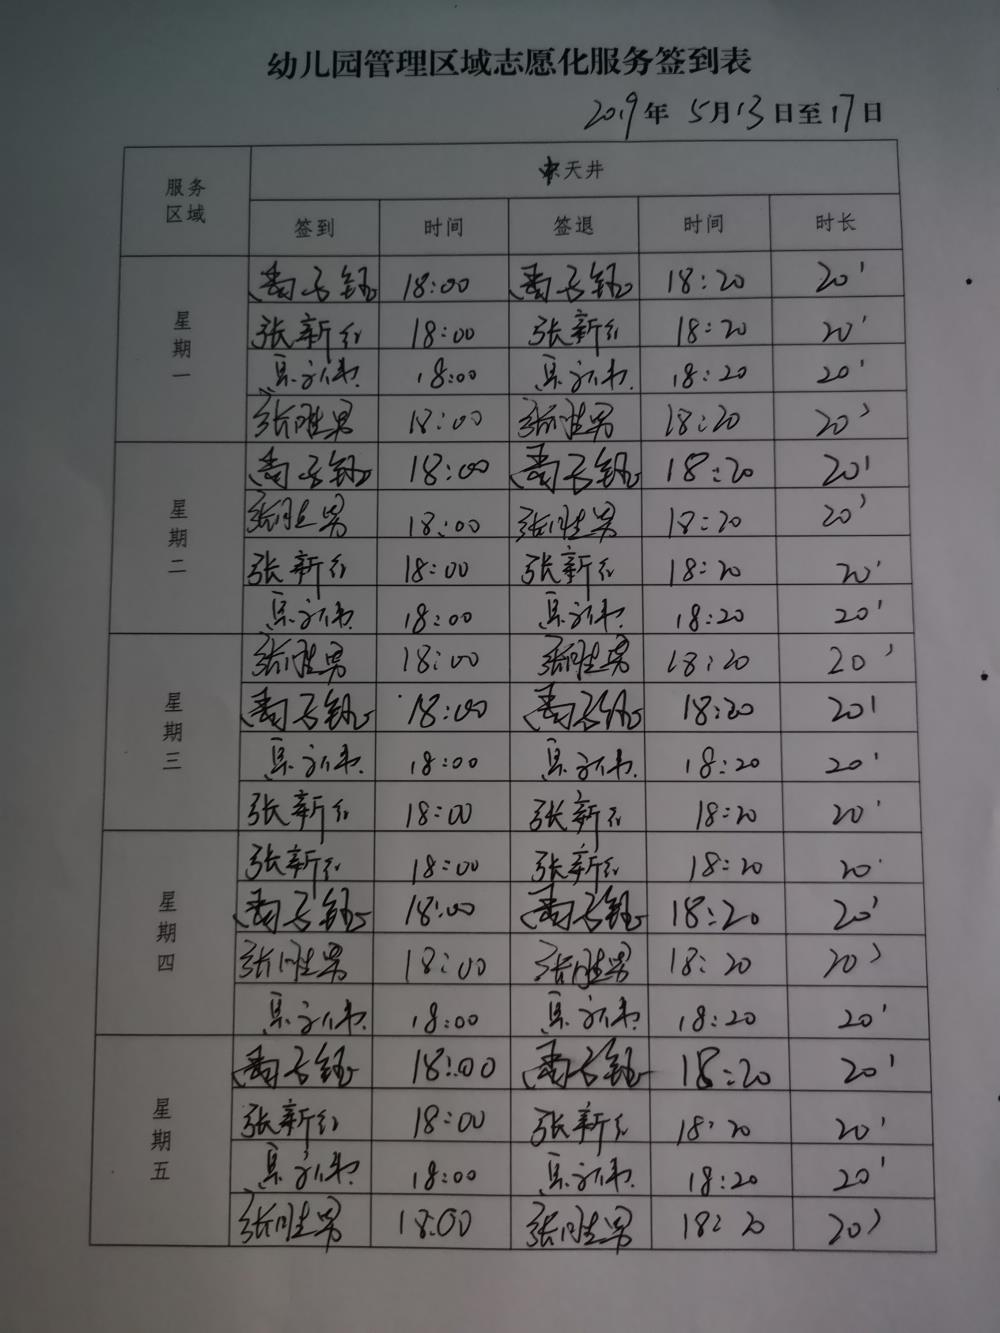 幼儿园管理区域志愿化服务签到表
2019年 5月13日至17日
服务区域 中天井
签到 时间 签退 时间 时长
星期一
18:00 18:20 20'
张新红 18:00 张新红 18:20 20'
18:00 18:20 20'
张胜男 18:00 张胜男 18:20 20'
星期二
18:00 18:20 20'
张胜男 18:00 张胜男 18:20 20'
张新红 18:00 张新红 18:20 20'
18:00 18:20 20'
星期三
张胜男 18:00 张胜男 18:20 20'
18:00 18:20 20'
18:00 18:20 20'
张新红 18:00 张新红 18:20 20'
星期四
张新红 18:00 张新红 18:20 20'
18:00 18:20 20'
张胜男 18:00 张胜男 18:20 20'
18:00 18:20 20'
星期五
18:00 18:20 20'
张新红 18:00 张新红 18:20 20'
18:00 18:20 20'
张胜男 18:00 张胜男 18:20 20'